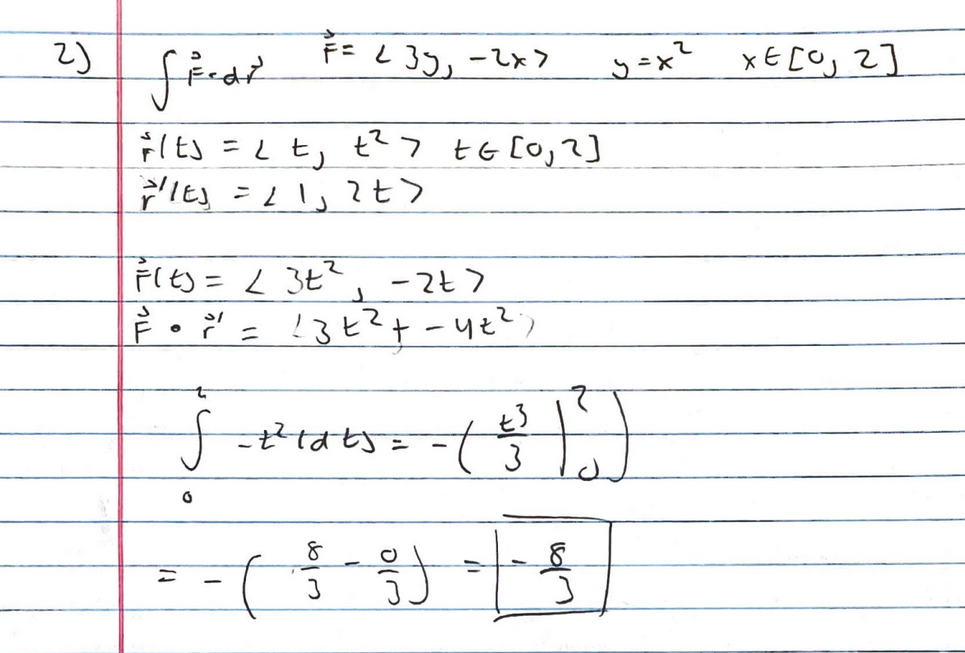 2) ∫ F⃗·dr⃗ F⃗ = < 3y, -2x > y = x² x ∈ [0, 2]
r⃗(t) = < t, t² > t ∈ [0, 2]
r⃗'(t) = < 1, 2t >
F⃗(t) = < 3t², -2t >
F⃗ • r⃗' = (3t² + -4t²)
∫₀² -t² (dt) = -( t³/3 |₀² )
= -( 8/3 - 0/3 ) = -8/3